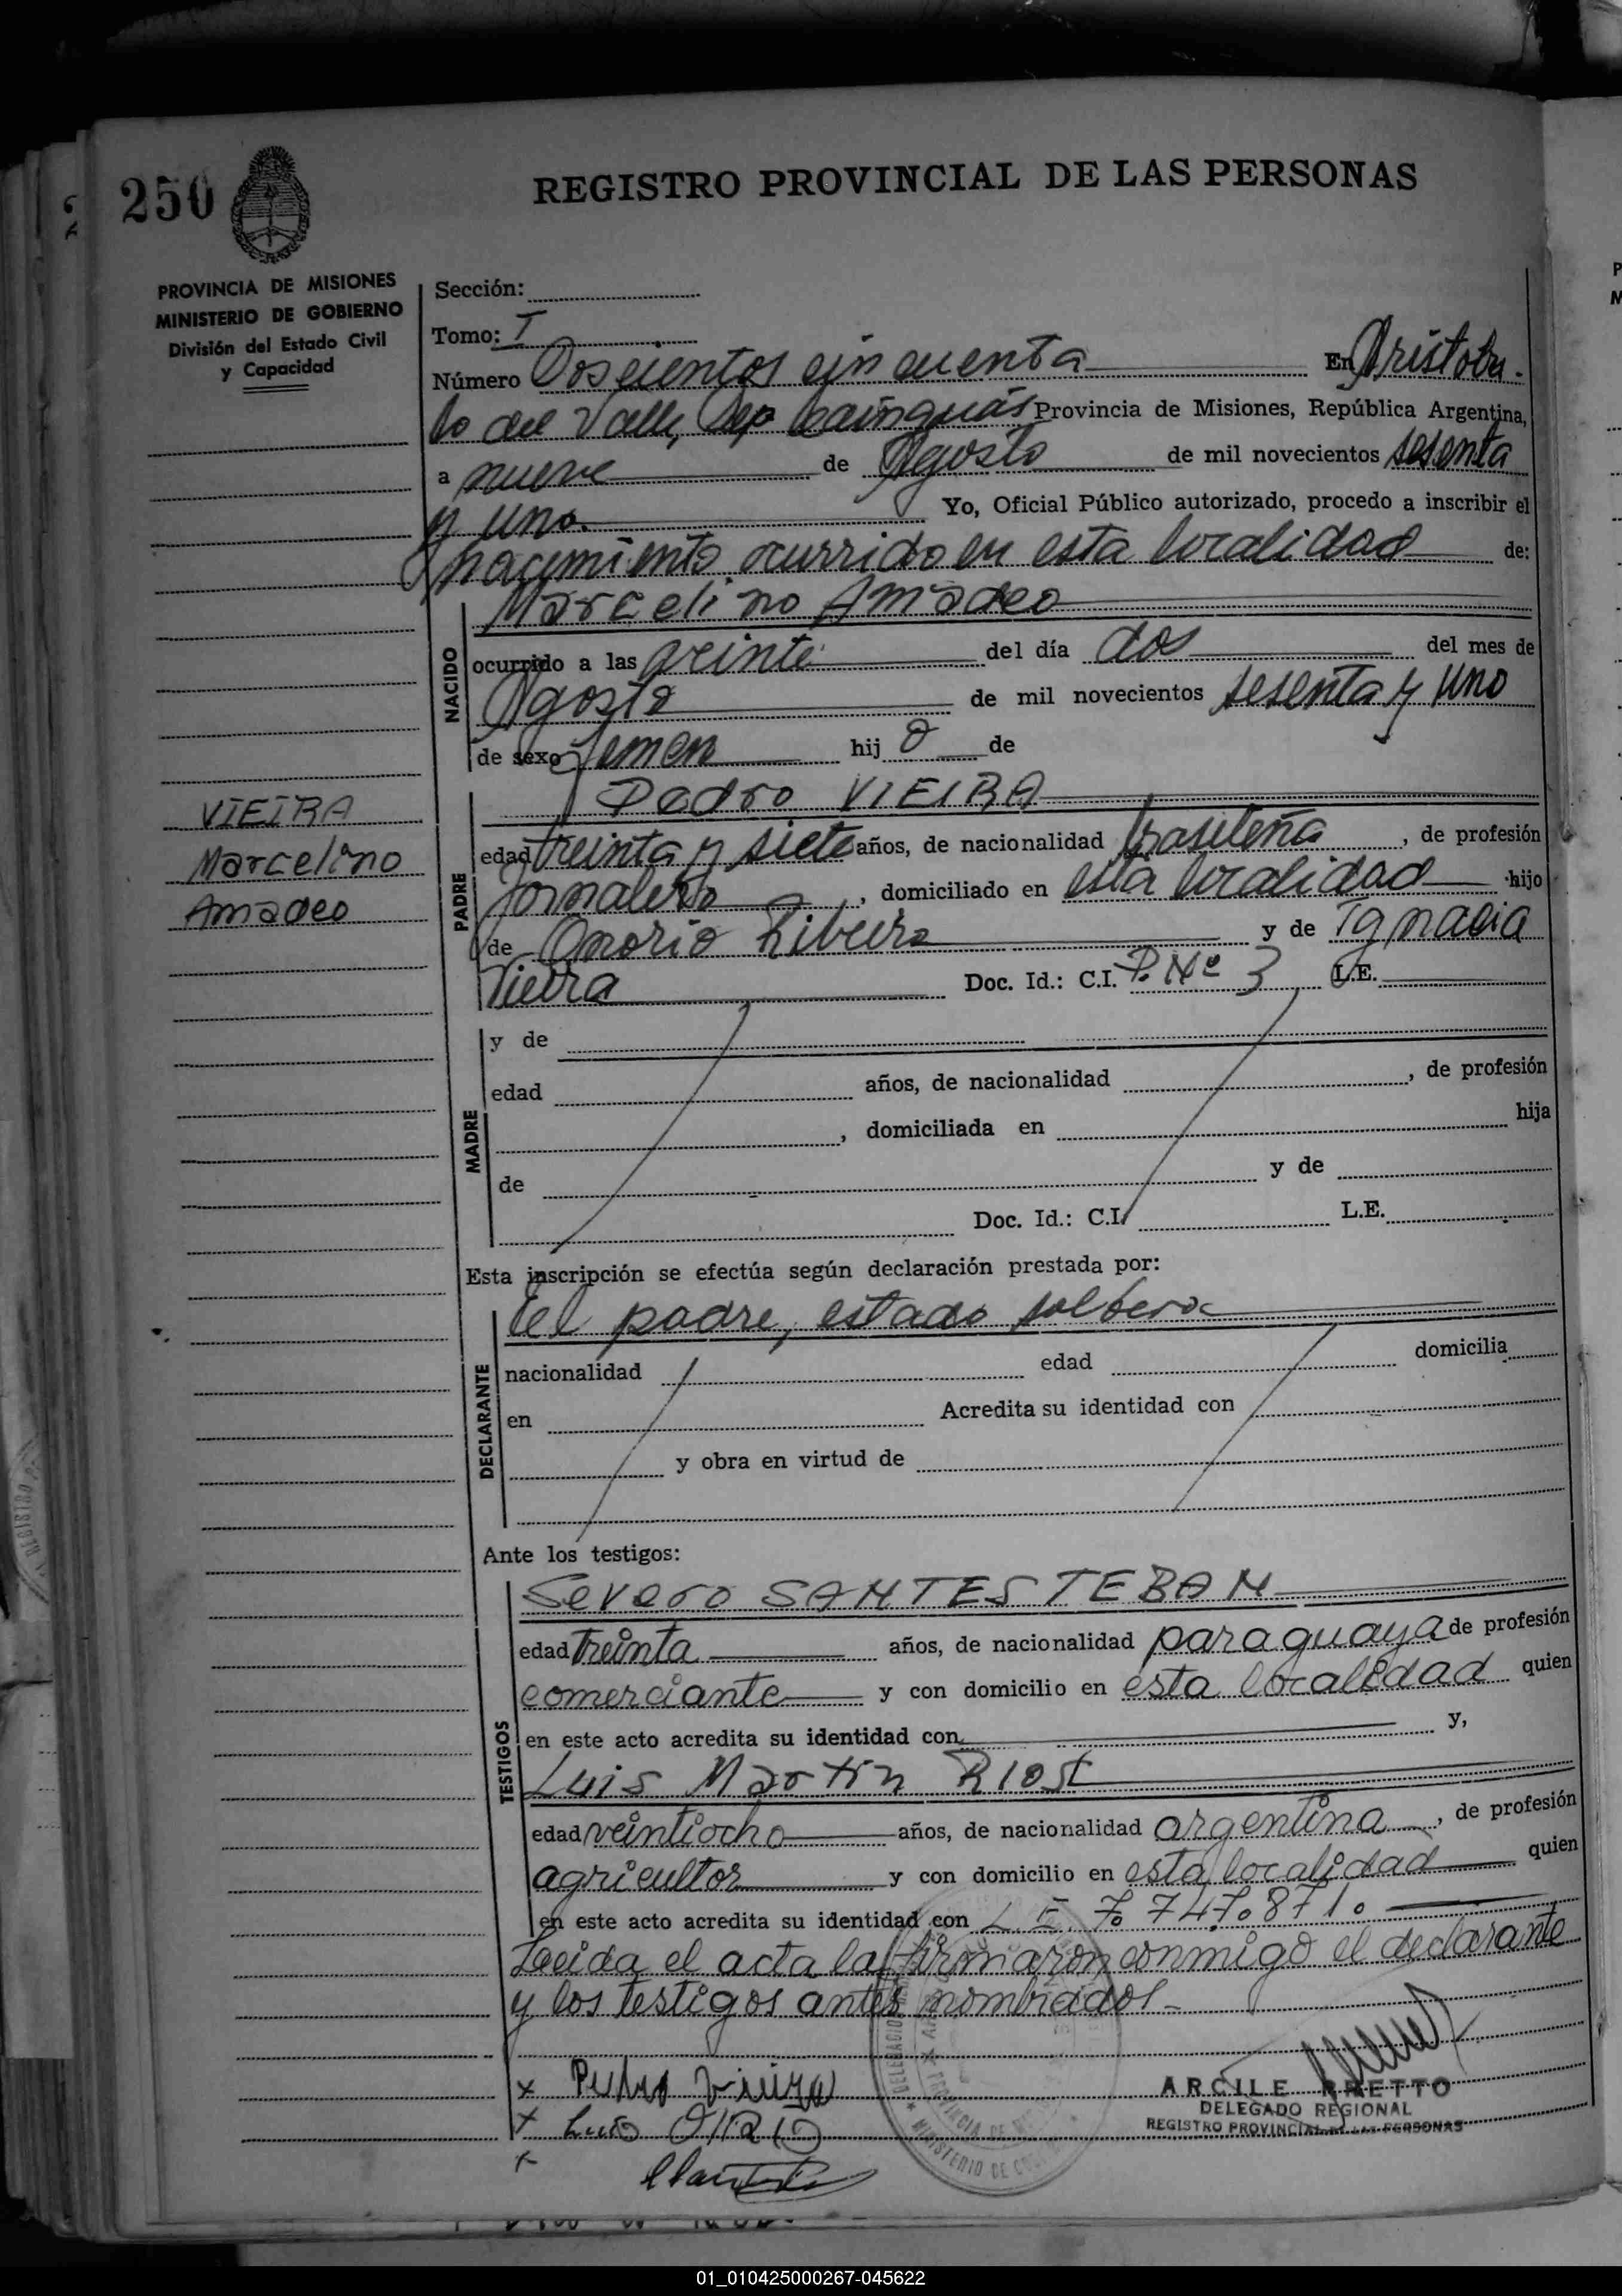 250
REGISTRO PROVINCIAL DE LAS PERSONAS
PROVINCIA DE MISIONES
MINISTERIO DE GOBIERNO
División del Estado Civil
y Capacidad
Sección:
Tomo: I
Número Doscientos cincuenta En Aristobu-
lo del Valle, Dep Cainguás Provincia de Misiones, República Argentina,
a nueve de Agosto de mil novecientos sesenta
y uno. Yo, Oficial Público autorizado, procedo a inscribir el
nacimiento ocurrido en esta localidad de:
NACIDO
Marcelino Amadeo
ocurrido a las veinte del día dos del mes de
Agosto de mil novecientos sesenta y uno
de sexo femen hij o de
VIEIRA
Marcelino
Amadeo
PADRE
Pedro VIEIRA
edad treinta y siete años, de nacionalidad brasileña, de profesión
Jornalero, domiciliado en esta localidad hijo
de Onorio Ribeiro y de Ignacia
Vieira Doc. Id.: C.I. P. Nº 3 L.E.
MADRE
y de
edad años, de nacionalidad , de profesión
, domiciliada en hija
de y de
Doc. Id.: C.I. L.E.
Esta inscripción se efectúa según declaración prestada por:
DECLARANTE
el padre, estado soltero
nacionalidad edad domicilia
en Acredita su identidad con
y obra en virtud de
Ante los testigos:
TESTIGOS
Severo SANTESTEBAN
edad treinta años, de nacionalidad paraguaya de profesión
comerciante y con domicilio en esta localidad quien
en este acto acredita su identidad con y,
Luis Martin RIOS
edad veintiocho años, de nacionalidad argentina, de profesión
agricultor y con domicilio en esta localidad quien
en este acto acredita su identidad con L.E. 7.747.871.
Leida el acta la firmaron conmigo el declarante
y los testigos antes nombrados-
x Pedro Vieira
ARCILE BRETTO
DELEGADO REGIONAL
REGISTRO PROVINCIAL DE LAS PERSONAS
x Luis
x
01_010425000267-045622